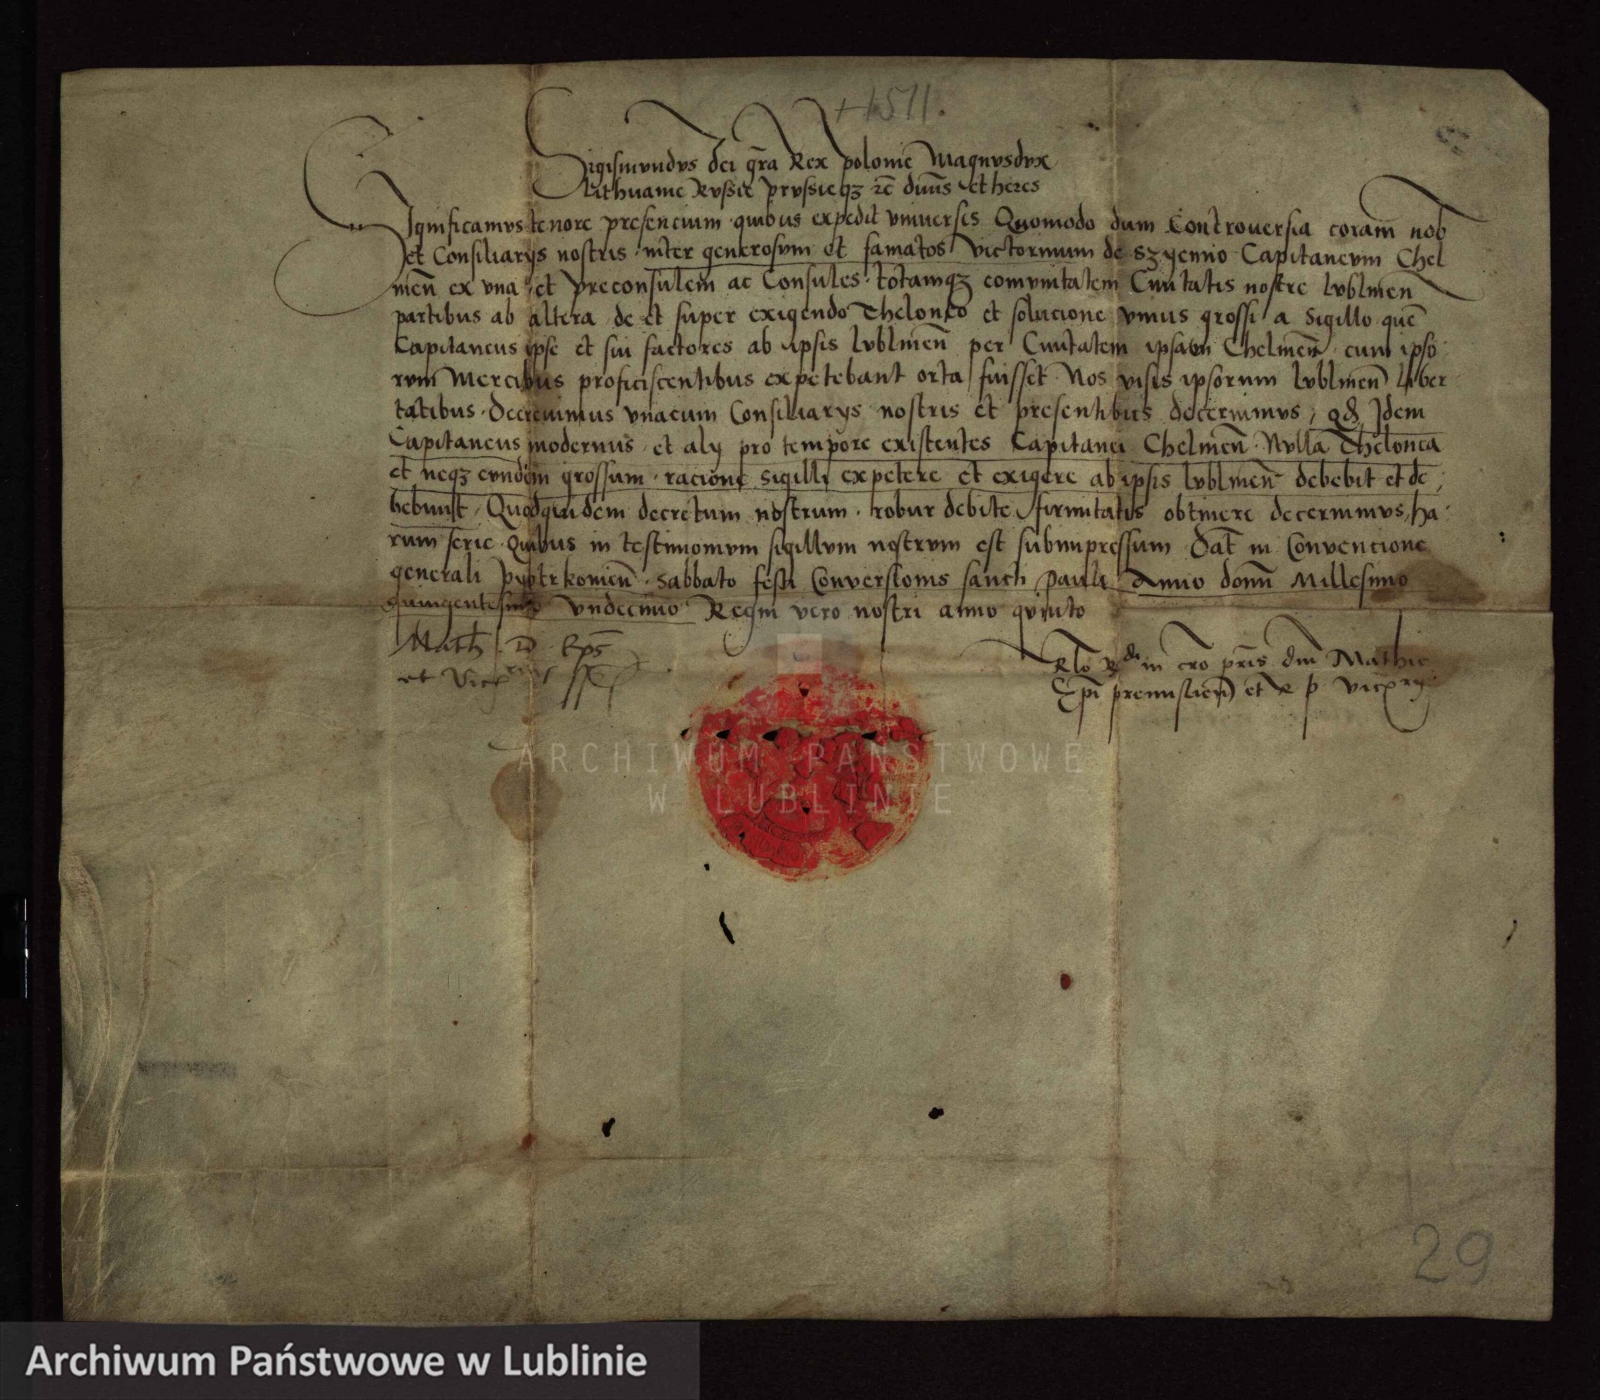 +1511.
Sigismundus dei gra Rex polonie Magnusdux
Lithuanie Russie prussieqz zc dnus et heres
Significamus tenore presencium quibus expedit vniuersis Quomodo dum Controuersia coram nob
et Consiliarys nostris inter generosum et famatos Victorinum de Szyenno Capitaneum Chel
men ex vna et preconsulem ac Consules totamqz comunitatem Ciuitatis nostre lublinen
partibus ab altera de et super exigendo Theloneo et solucione vnius grossi a Sigillo que
Capitaneus ipse et sui factores ab ipsis lublinen per Ciuitatem ipsam Chelmen cum ipso
rum Mercibus proficiscentibus expetebant orta fuisset Nos visis ipsorum lublinen liber
tatibus decreuimus vnacum Consiliarys nostris et presentibus decernimus, qd Idem
Capitaneus modernus et aly pro tempore existentes Capitanei Chelmen Nulla Thelonea
et neqz eundem grossum racione sigilli expetere et exigere ab ipsis lublinen debebit et de,
bebunt, Quodquidem decretum nostrum robur debite firmitatis obtinere decernimus, ha
rum serie quibus in testimonium sigillum nostrum est subimpressum Dat in Conuencione
generali pyotrkowien Sabbato festi Conuersionis sancti pauli Anno domi Millesimo
quingentesimo vndecimo Regni vero nostri anno quinto
Math D Eps
et Vic
Rlo Rdi in cro pris dni Mathie
Epi premislien et R p vicery
ARCHIWUM PAŃSTWOWE
W LUBLINIE
29
Archiwum Państwowe w Lublinie